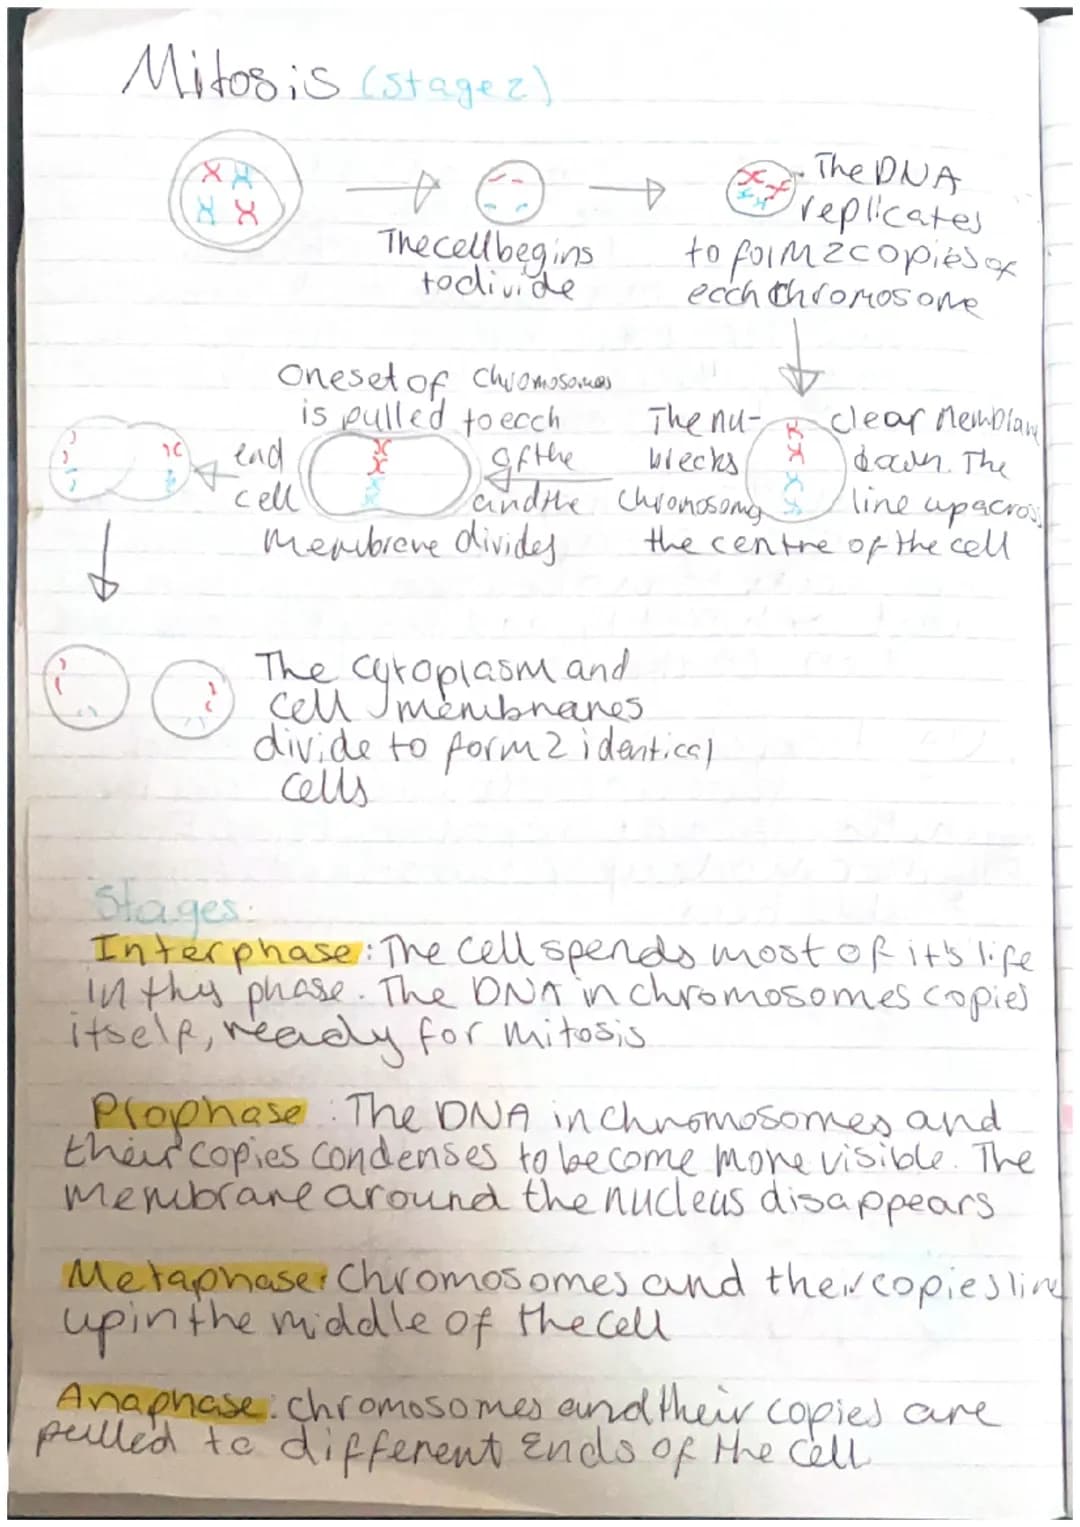 Mitosis (stage 2)
The DNA
replicates
to form 2 copies of
each chromosome
The cell begins
to divide
The nu- clear membrane
breaks down. The
chromosomes line up across
the centre of the cell
One set of chromosomes
is pulled to each
end of the
cell and the
membrane divides
The cytoplasm and
cell membranes
divide to form 2 identical
cells
Stages:
Interphase: The cell spends most of it's life
in this phase. The DNA in chromosomes copies
itself, ready for mitosis
Prophase: The DNA in chromosomes and
their copies condenses to become more visible. The
membrane around the nucleus disappears
Metaphase: Chromosomes and their copies line
up in the middle of the cell
Anaphase: chromosomes and their copies are
pulled to different ends of the cell